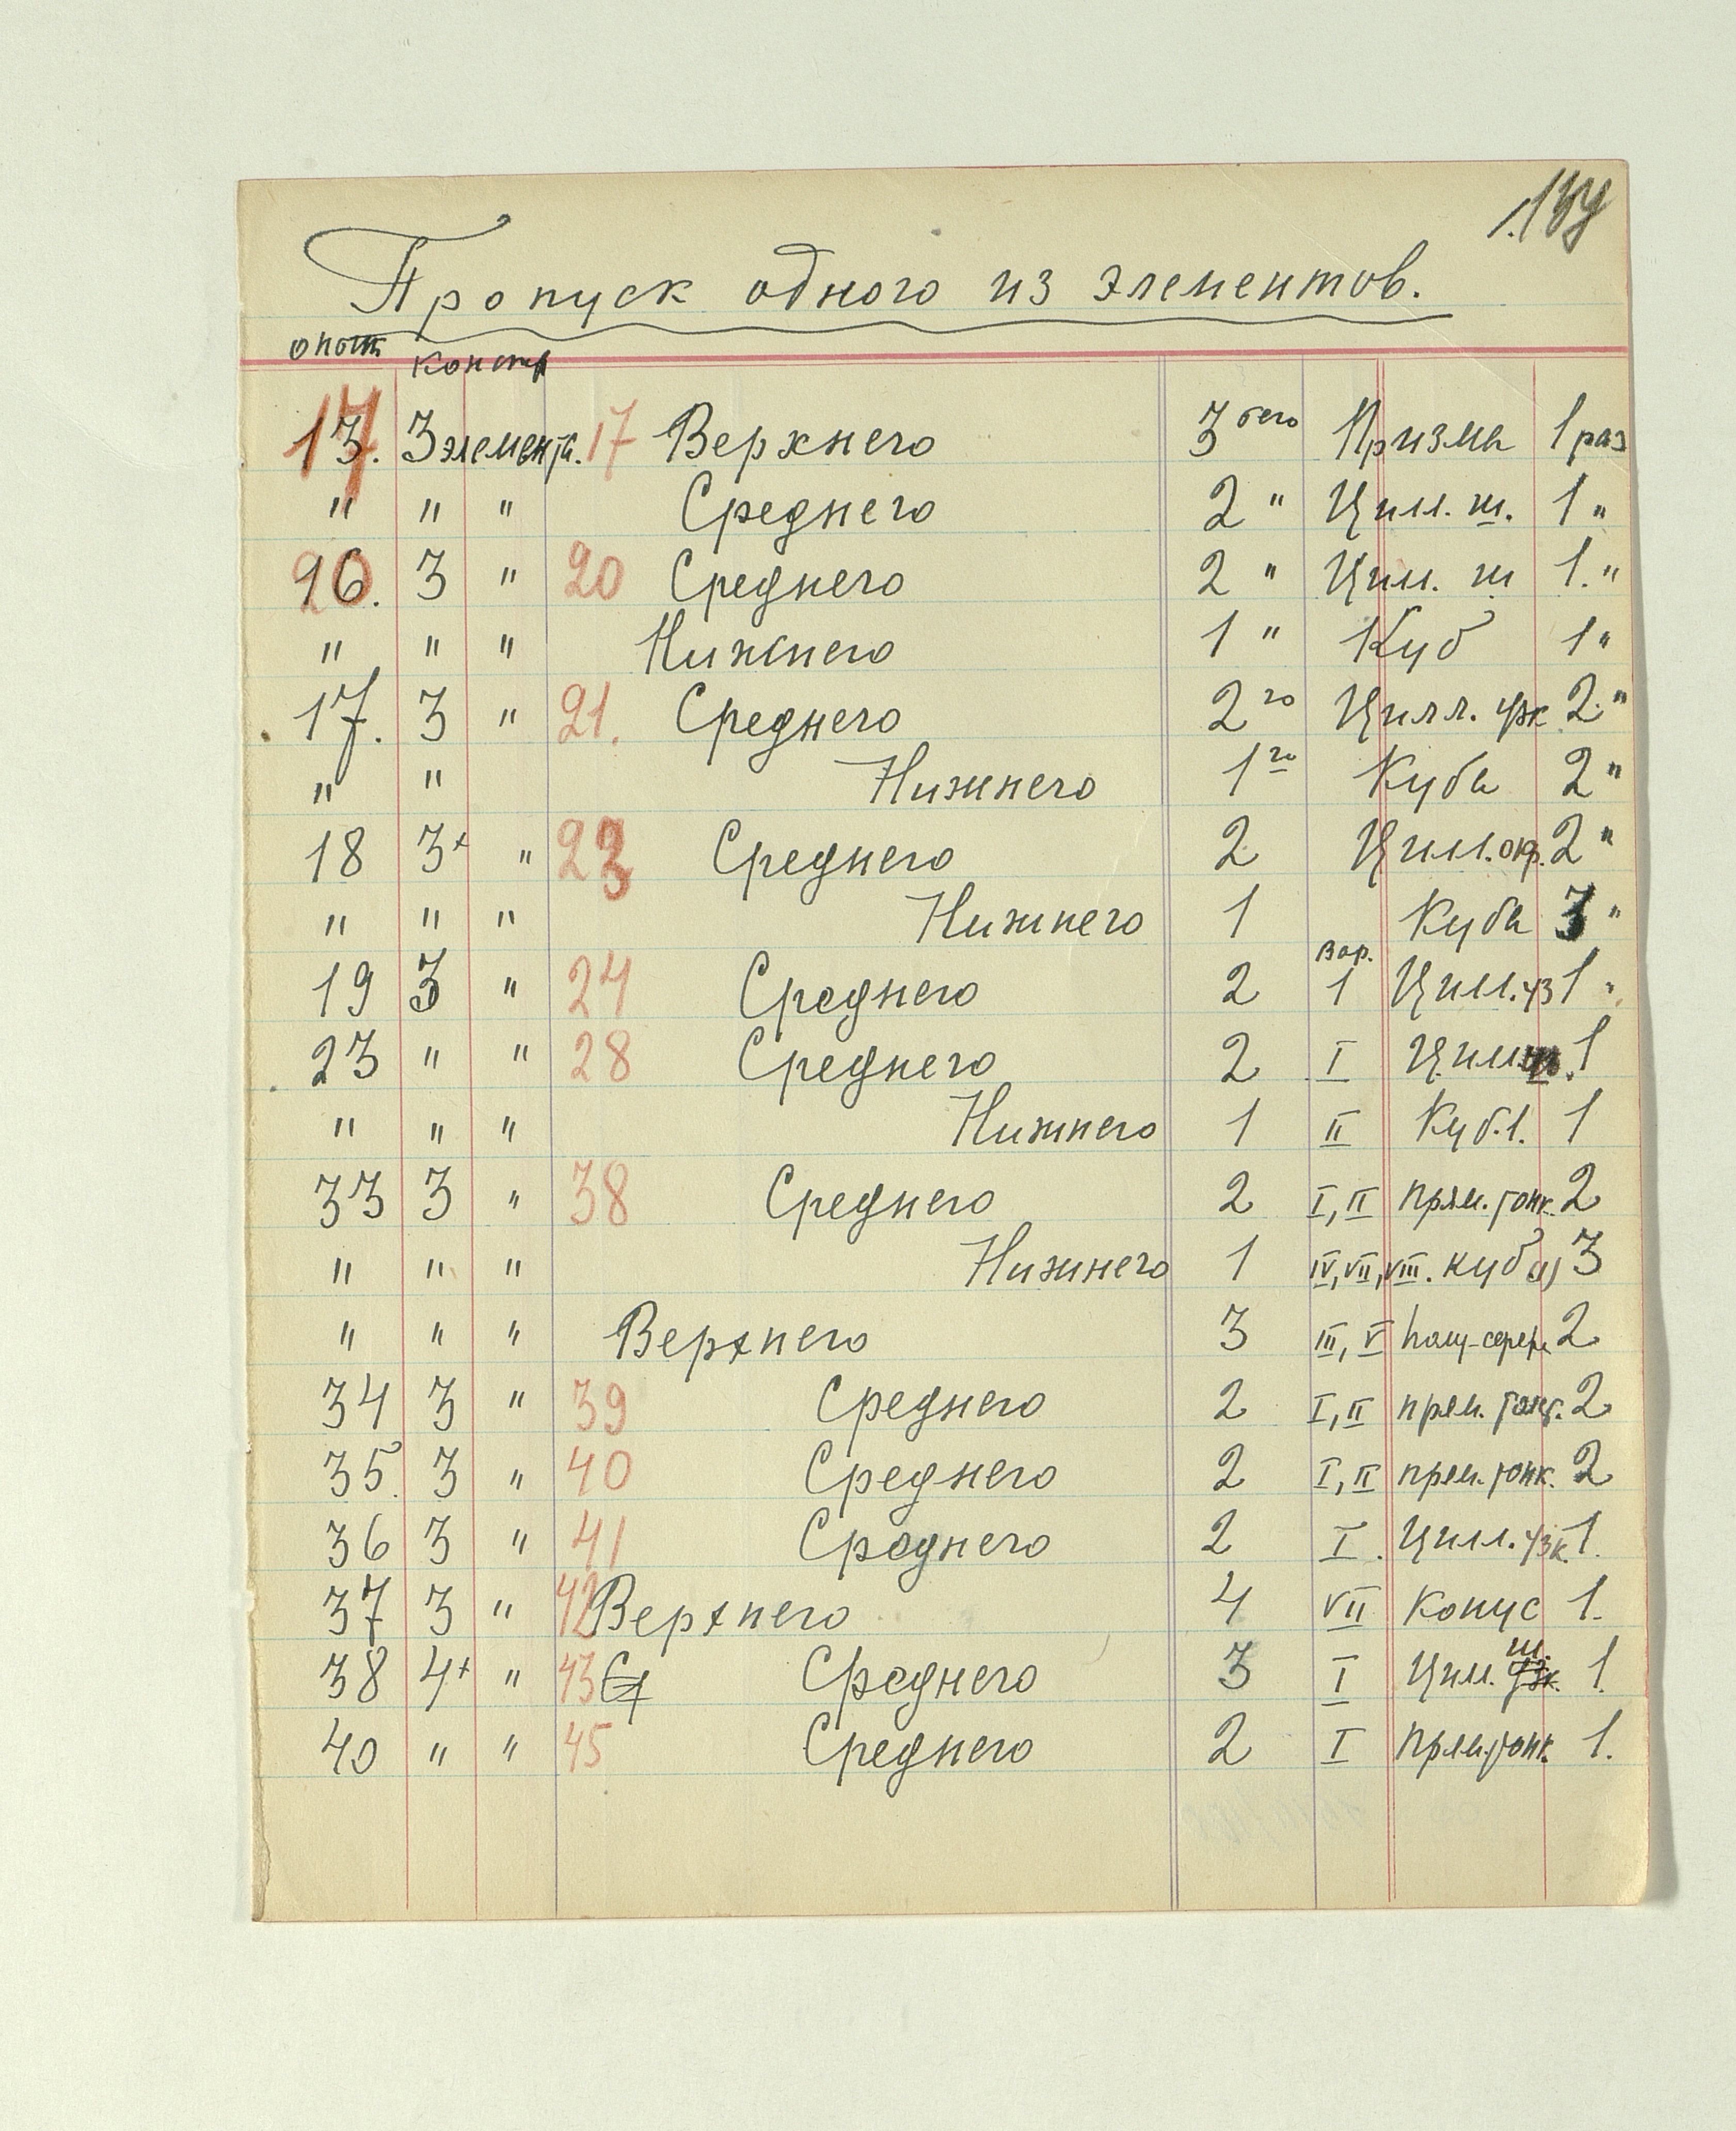 Пропуск одного из элементов.
опыт Констр
13. 3 элемента. 17 Верхнего 3 его Призмы 1 раз
" " " Среднего 2 " Цил. ш. 1 "
16. 3 " 20 Среднего 2 " Цил. ш 1. "
" " " Нижнего 1 " Куб 1 "
17. 3 " 21. Среднего 2 го Цилл. узк 2 "
" " Нижнего 1 го Куба 2 "
18 3+ " 23 Среднего 2 Цилл. 2 "
" " " Нижнего 1 Куба 3 "
Вар.
19 3 " 24 Среднего 2 1 Цилл. уз 1 "
23 " " 28 Среднего 2 I Цил. ш. 1
" " " Нижнего 1 II Куб. 1. 1
33 3 " 38 Среднего 2 I, II прям. тонк. 2
" " " Нижнего 1 IV, VII, VIII. куб а) 3
" " " Верхнего 3 III, V 2
34 3 " 39 Среднего 2 I, II прям. тонк. 2
35. 3 " 40 Среднего 2 I, II прям. тонк. 2
36 3 " 41 Среднего 2 I. Цилл. узк 1.
37 3 " 42 Верхнего 4 VII Конус 1.
38 4+ " 43 Среднего 3 I Цилл. узк. ш. 1.
40 " " 45 Среднего 2 I Прям. тонк. 1.